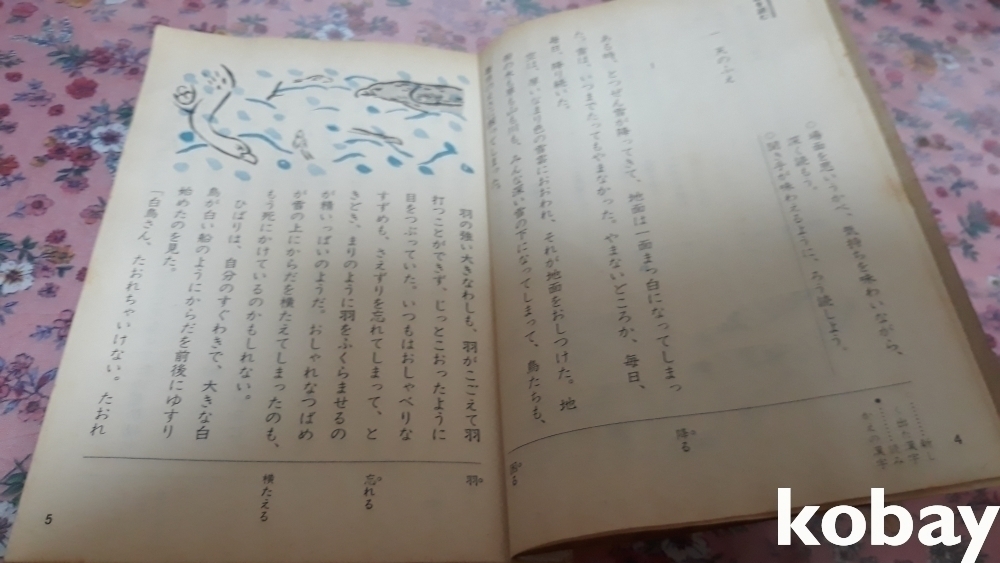 を読む
○場面を思いうかべ、気持ちを味わいながら、
深く読もう。
○聞き手が味わえるように、ろう読しよう。
一 天のふえ
ある時、とつぜん雪が降ってきて、地面は一面まっ白になってしまっ
た。雪は、いつまでたってもやまなかった。やまないどころか、毎日、
毎日、降り続いた。
空は、厚いなまり色の雪雲におおわれ、それが地面をおしつけた。地
面の木も草も丘も川も、みんな深い雪の下になってしまって、鳥たちも、
てしまった。
新しく
出た漢字
読み
かえの漢字
降る
4
羽の強い大きなわしも、羽がこごえて羽
打つことができず、じっとこおったように
目をつぶっていた。いつもはおしゃべりな
すずめも、さえずりを忘れてしまって、と
きどき、まりのように羽をふくらませるの
が精いっぱいのようだ。おしゃれなつばめ
が雪の上にからだを横たえてしまったのも、
もう死にかけているのかもしれない。
ひばりは、自分のすぐわきで、大きな白
鳥が白い船のようにからだを前後にゆすり
始めたのを見た。
「白鳥さん。たおれちゃいけない。たおれ
羽
忘れる
横たえる
5
kobay